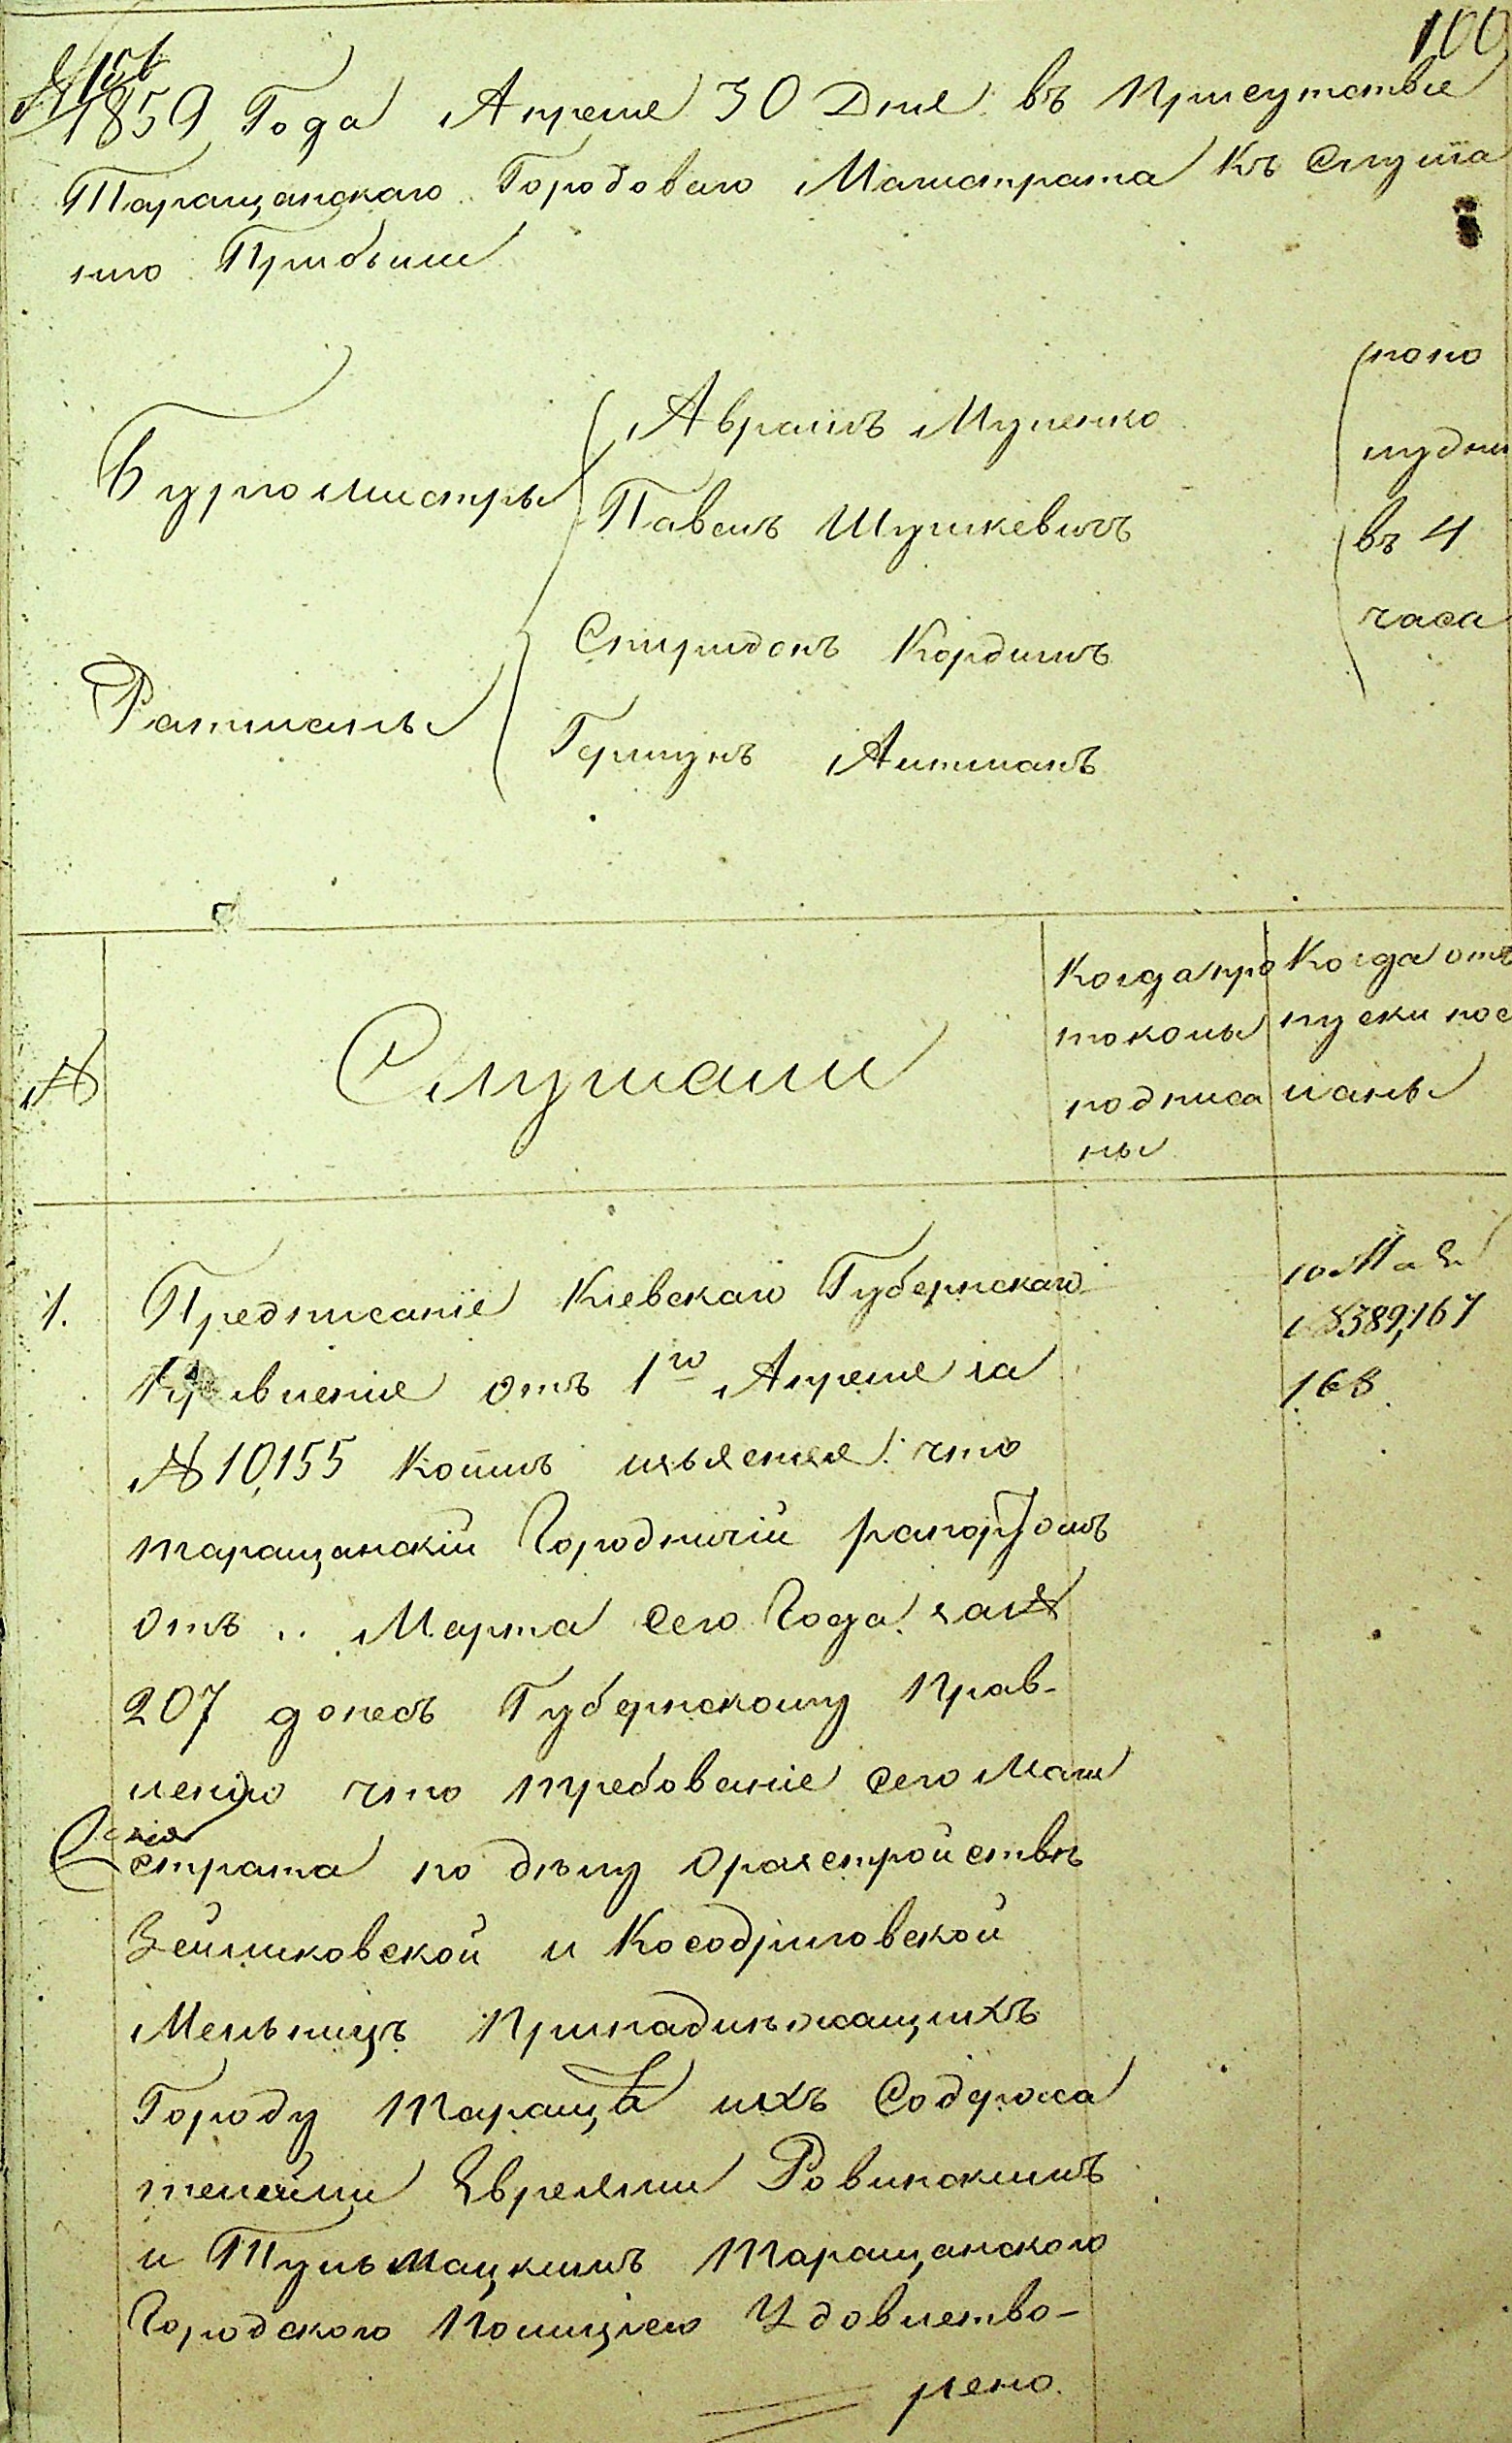 100
№ 156
1859 Года Апреля 30 Дня въ Присутствіе
Таращанскаго Городоваго Магистрата Къ Слуша
нію Прибыли
Бургомистры
Аврамъ Муленко
Павелъ Шушкевичъ
Ратманы
Спиридонъ Кордишъ
Гершунъ Аитманъ
попо
лудни
въ 4
часа
№
Слушали
Когда про
токолы
подписа
ны
Когда отъ
пуски пос
ланы
1. Предписаніе Кіевскаго Губернскаго
Правленія отъ 1го Апреля за
№ 10,155 коимъ изъясняя: что
таращанскій Городничій рапортомъ
отъ .. Марта сего Года за №
207 донесъ Губернскому Прав-
ленію что требованіе сего Маги
страта по дѣлу о разстройствѣ
и Кособриговской
Мельницъ Принадлѣжащихъ
Городу Таращѣ ихъ Содержа
телями Евреями Ровинскимъ
и Тульмацкимъ Таращанского
Городского Полиціею Удовлетво-
рено.
10 Мая
№ 389, 167
168